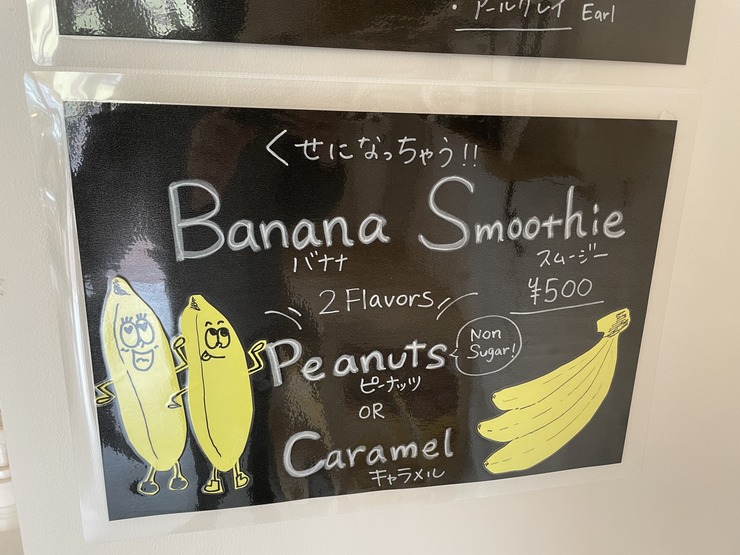 ・アールグレイ Earl
くせになっちゃう!!
Banana Smoothie
バナナ スムージー
2 Flavors ¥500
Peanuts Non Sugar!
ピーナッツ
OR
Caramel
キャラメル